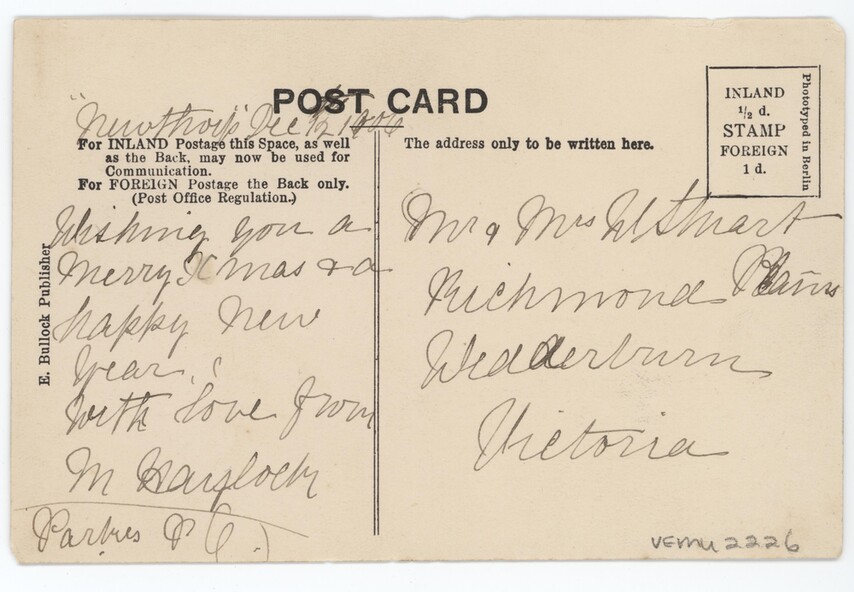 POST CARD
"Newthorp" Dec 12 1906
For INLAND Postage this Space, as well
as the Back, may now be used for
Communication.
For FOREIGN Postage the Back only.
(Post Office Regulation.)
Wishing you a
Merry Xmas & a
happy New
Year.
With love from
M Haylock
Parkes P
E. Bullock Publisher
The address only to be written here.
INLAND
½ d.
STAMP
FOREIGN
1 d.
Phototyped in Berlin
Mr & Mrs W Stuart
Richmond Plains
Wedderburn
Victoria
VEMU 2226